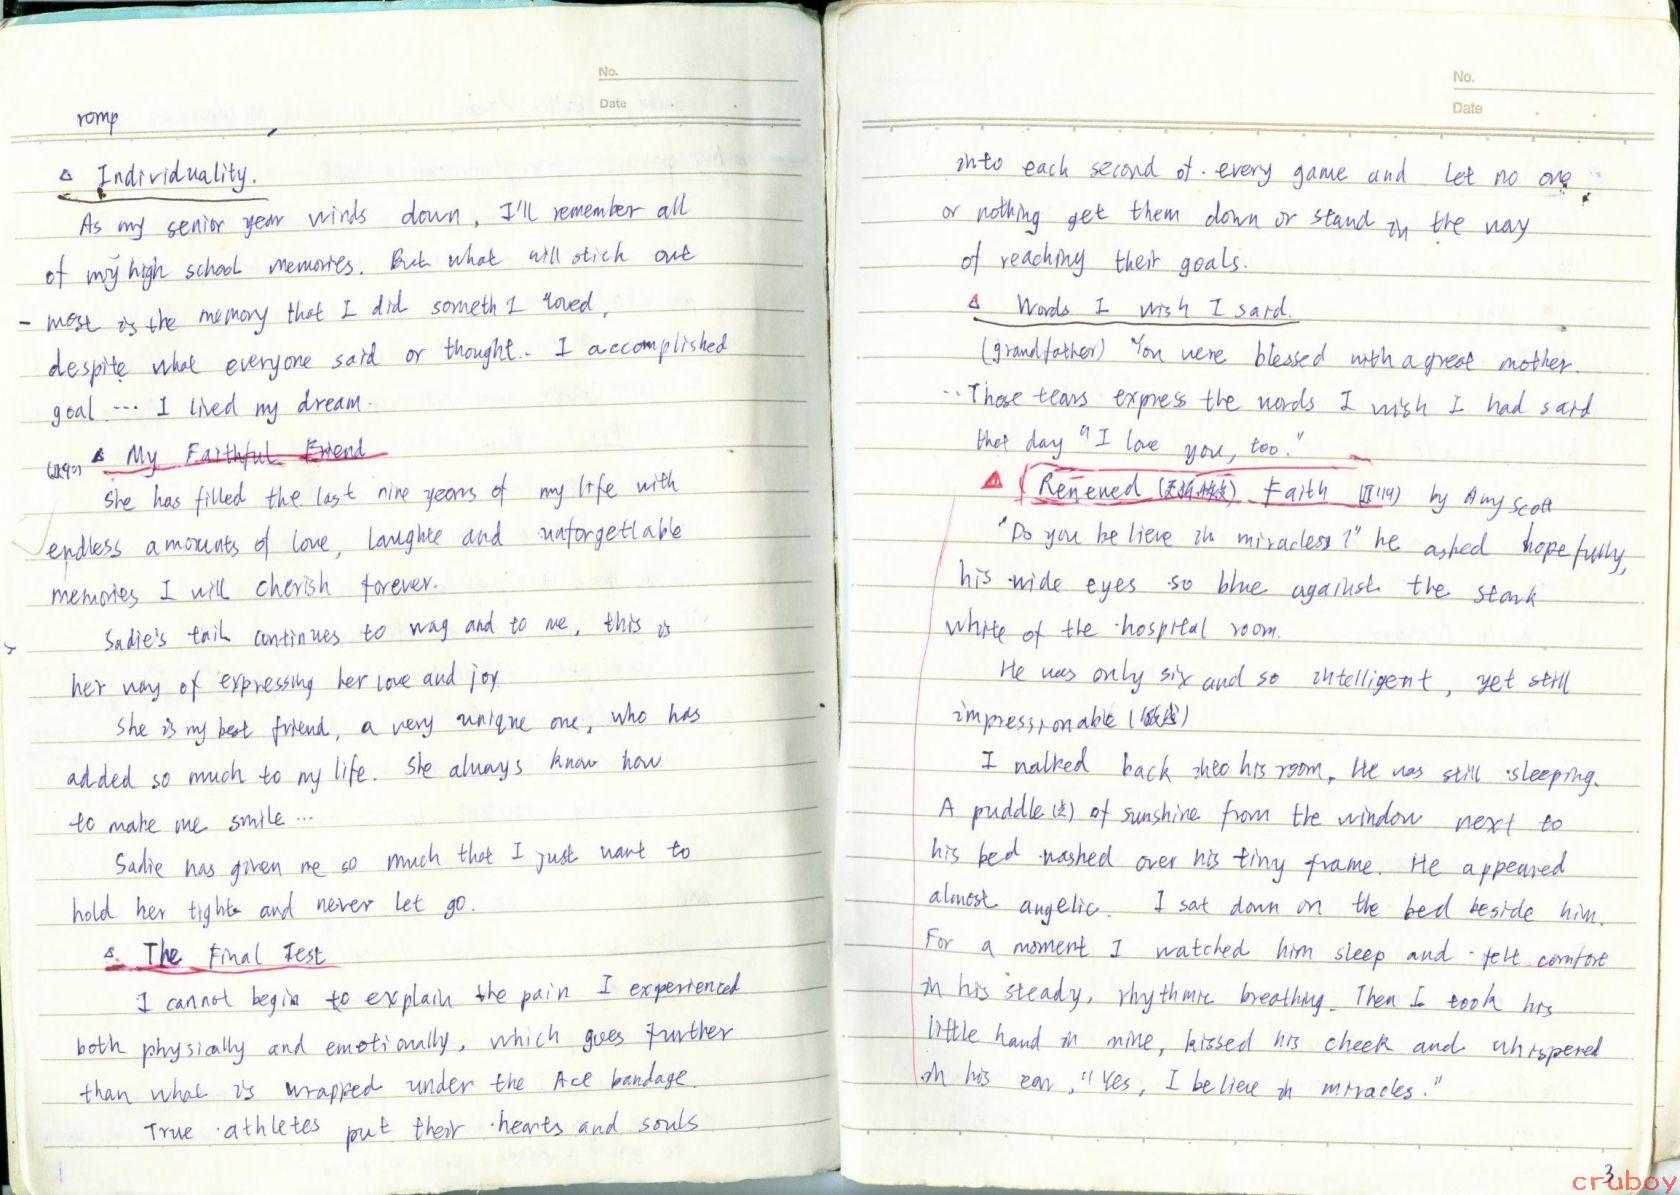 No.
Date
romp
△ Individuality.
As my senior year winds down, I'll remember all
of my high school memories. But what will stick out
- most is the memory that I did someth I loved,
despite what everyone said or thought.. I accomplished
goal ... I lived my dream.
△ My Faithful Friend
She has filled the last nine years of my life with
endless amounts of love, laughte and unforgetlable
memories I will cherish forever.
Sadie's tail continues to wag and to me, this is
her way of expressing her love and joy
She is my best friend, a very unique one, who has
added so much to my life. She always know how
to make me smile ...
Sadie has given me so much that I just want to
hold her tight and never let go.
△ The Final Test
I cannot begin to explain the pain I experienced
both physically and emotionally, which goes further
than what is wrapped under the Ace bandage.
True athletes put their hearts and souls
No.
Date
into each second of every game and let no one
or nothing get them down or stand in the way
of reaching their goals.
△ Words I wish I said.
(grandfather) You were blessed with a great mother.
... Those tears express the words I wish I had said
that day "I love you, too."
△ Renewed Faith by Amy Scott
"Do you believe in miracless?" he asked hopefully,
his wide eyes so blue against the stark
white of the hospital room.
He was only six and so intelligent, yet still
impressionable
I walked back into his room, He was still sleeping.
A puddle of sunshine from the window next to
his bed washed over his tiny frame. He appeared
almost angelic. I sat down on the bed beside him.
For a moment I watched him sleep and felt comfort
in his steady, rhythmic breathing. Then I took his
little hand in mine, kissed his cheek and whispered
in his ear, "Yes, I believe in miracles."
3
cruboy